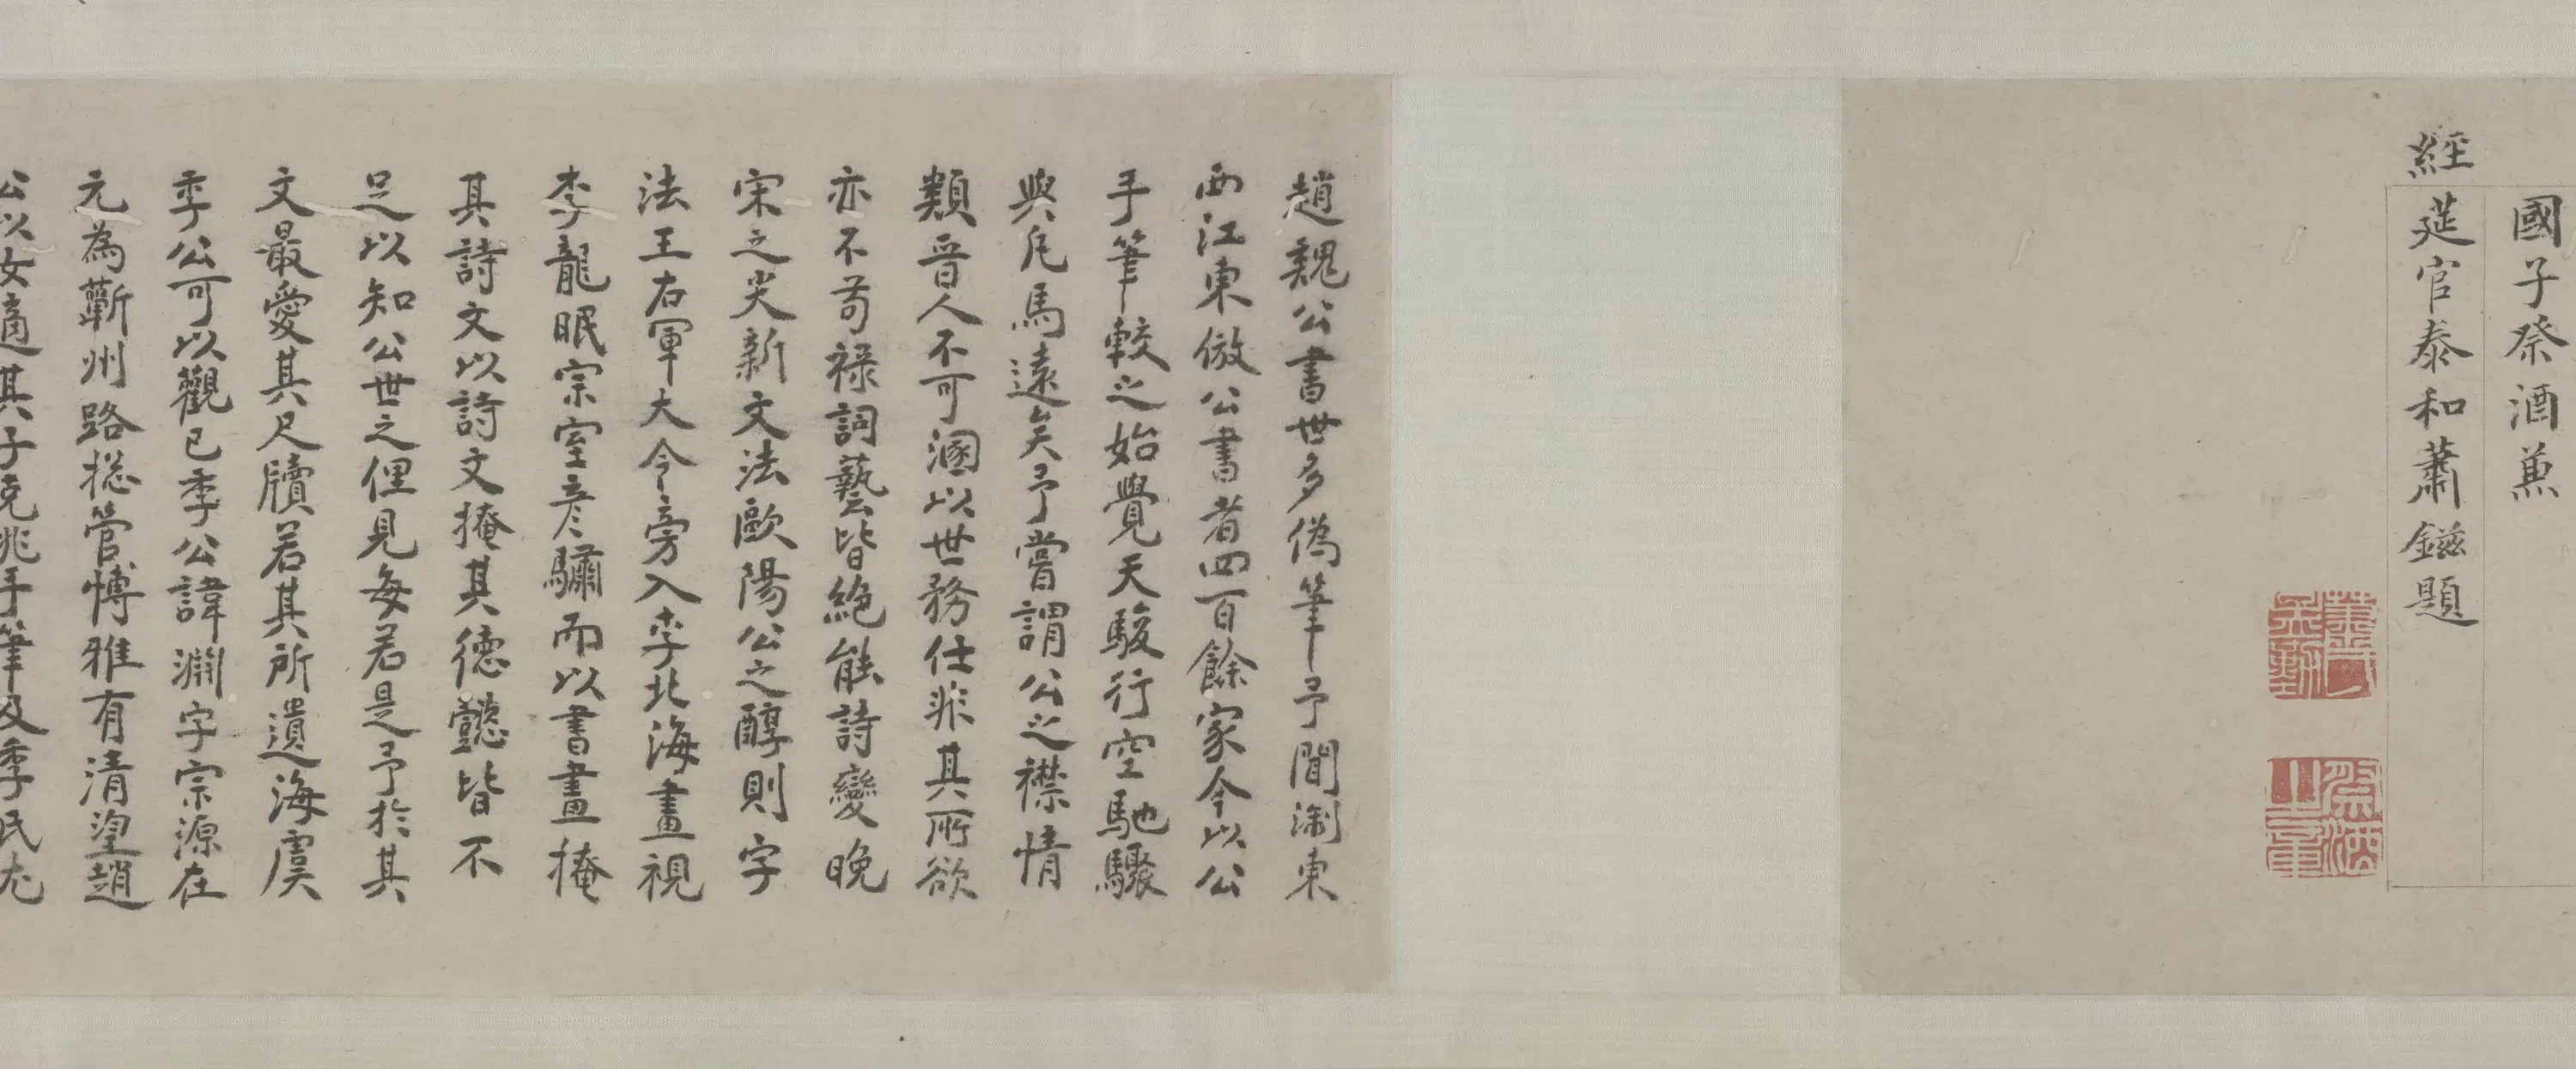 國子祭酒兼
經筵官泰和蕭鎡題
趙魏公書世多偽筆予聞淛東
西江東倣公書者四百餘家今以公
手筆較之始覺天駿行空馳驟
與凡馬遠矣予嘗謂公之襟情
類晉人不可溷以世務仕非其所欲
亦不苟祿詞藝皆絶能詩變晚
宋之尖新文法歐陽公之醇則字
法王右軍大令旁入李北海畫視
李龍眠宗室彦驌而以書畫掩
其詩文以詩文掩其德懿皆不
足以知公世之俚見每若是予於其
文最愛其尺牘若其所遺海虞
季公可以觀已季公諱淵字宗源在
元為蘄州路揔管博雅有清望趙
公以女適其子克兆手筆及季氏尤